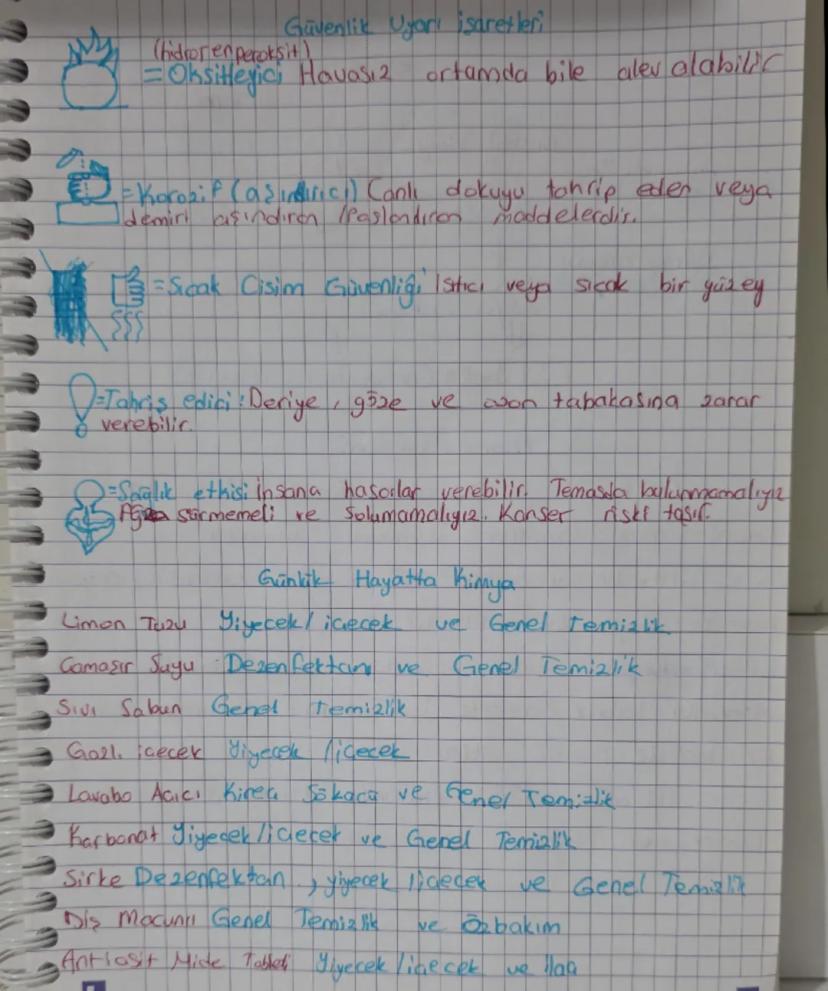 Güvenlik Uyarı işaretleri
(hidrojenperoksit)
= Oksitleyici Havasız ortamda bile alev alabilir
= Korozif (aşındırıcı) Canlı dokuyu tahrip eden veya
demiri aşındıran /Paslandıran maddelerdir.
= Sıcak Cisim Güvenliği Isıtıcı veya sıcak bir yüzey
= Tahriş edici: Deriye, göze ve ozon tabakasına zarar
verebilir.
= Sağlık etkisi insana hasarlar verebilir. Temasda bulunmamalıyız
Ağza sürmemeli ve Solumamalıyız. Kanser riski taşır.
Günlük Hayatta Kimya
Limon Tuzu Yiyecek/içecek ve Genel Temizlik
Çamaşır Suyu Dezenfektan ve Genel Temizlik
Sıvı Sabun Genel Temizlik
Gazlı içecek Yiyecek/içecek
Lavabo Açıcı Kireç Sökücü ve Genel Temizlik
Karbonat Yiyecek/içecek ve Genel Temizlik
Sirke Dezenfektan, yiyecek/içecek ve Genel Temizlik
Diş Macunu Genel Temizlik ve Özbakım
Antiasit Mide Tableti Yiyecek/içecek ve ilaç